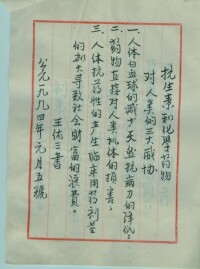 抗生素和化学药物
对人类的三大威协。
一.人体白血球的减少天然抗病力的降低；
二.药物直接对人类机体的损害；
三.人体抗药性的产生临床用药剂量
的加大导致社会财富的浪费。
王佑三書
公元一九九四年元月五號